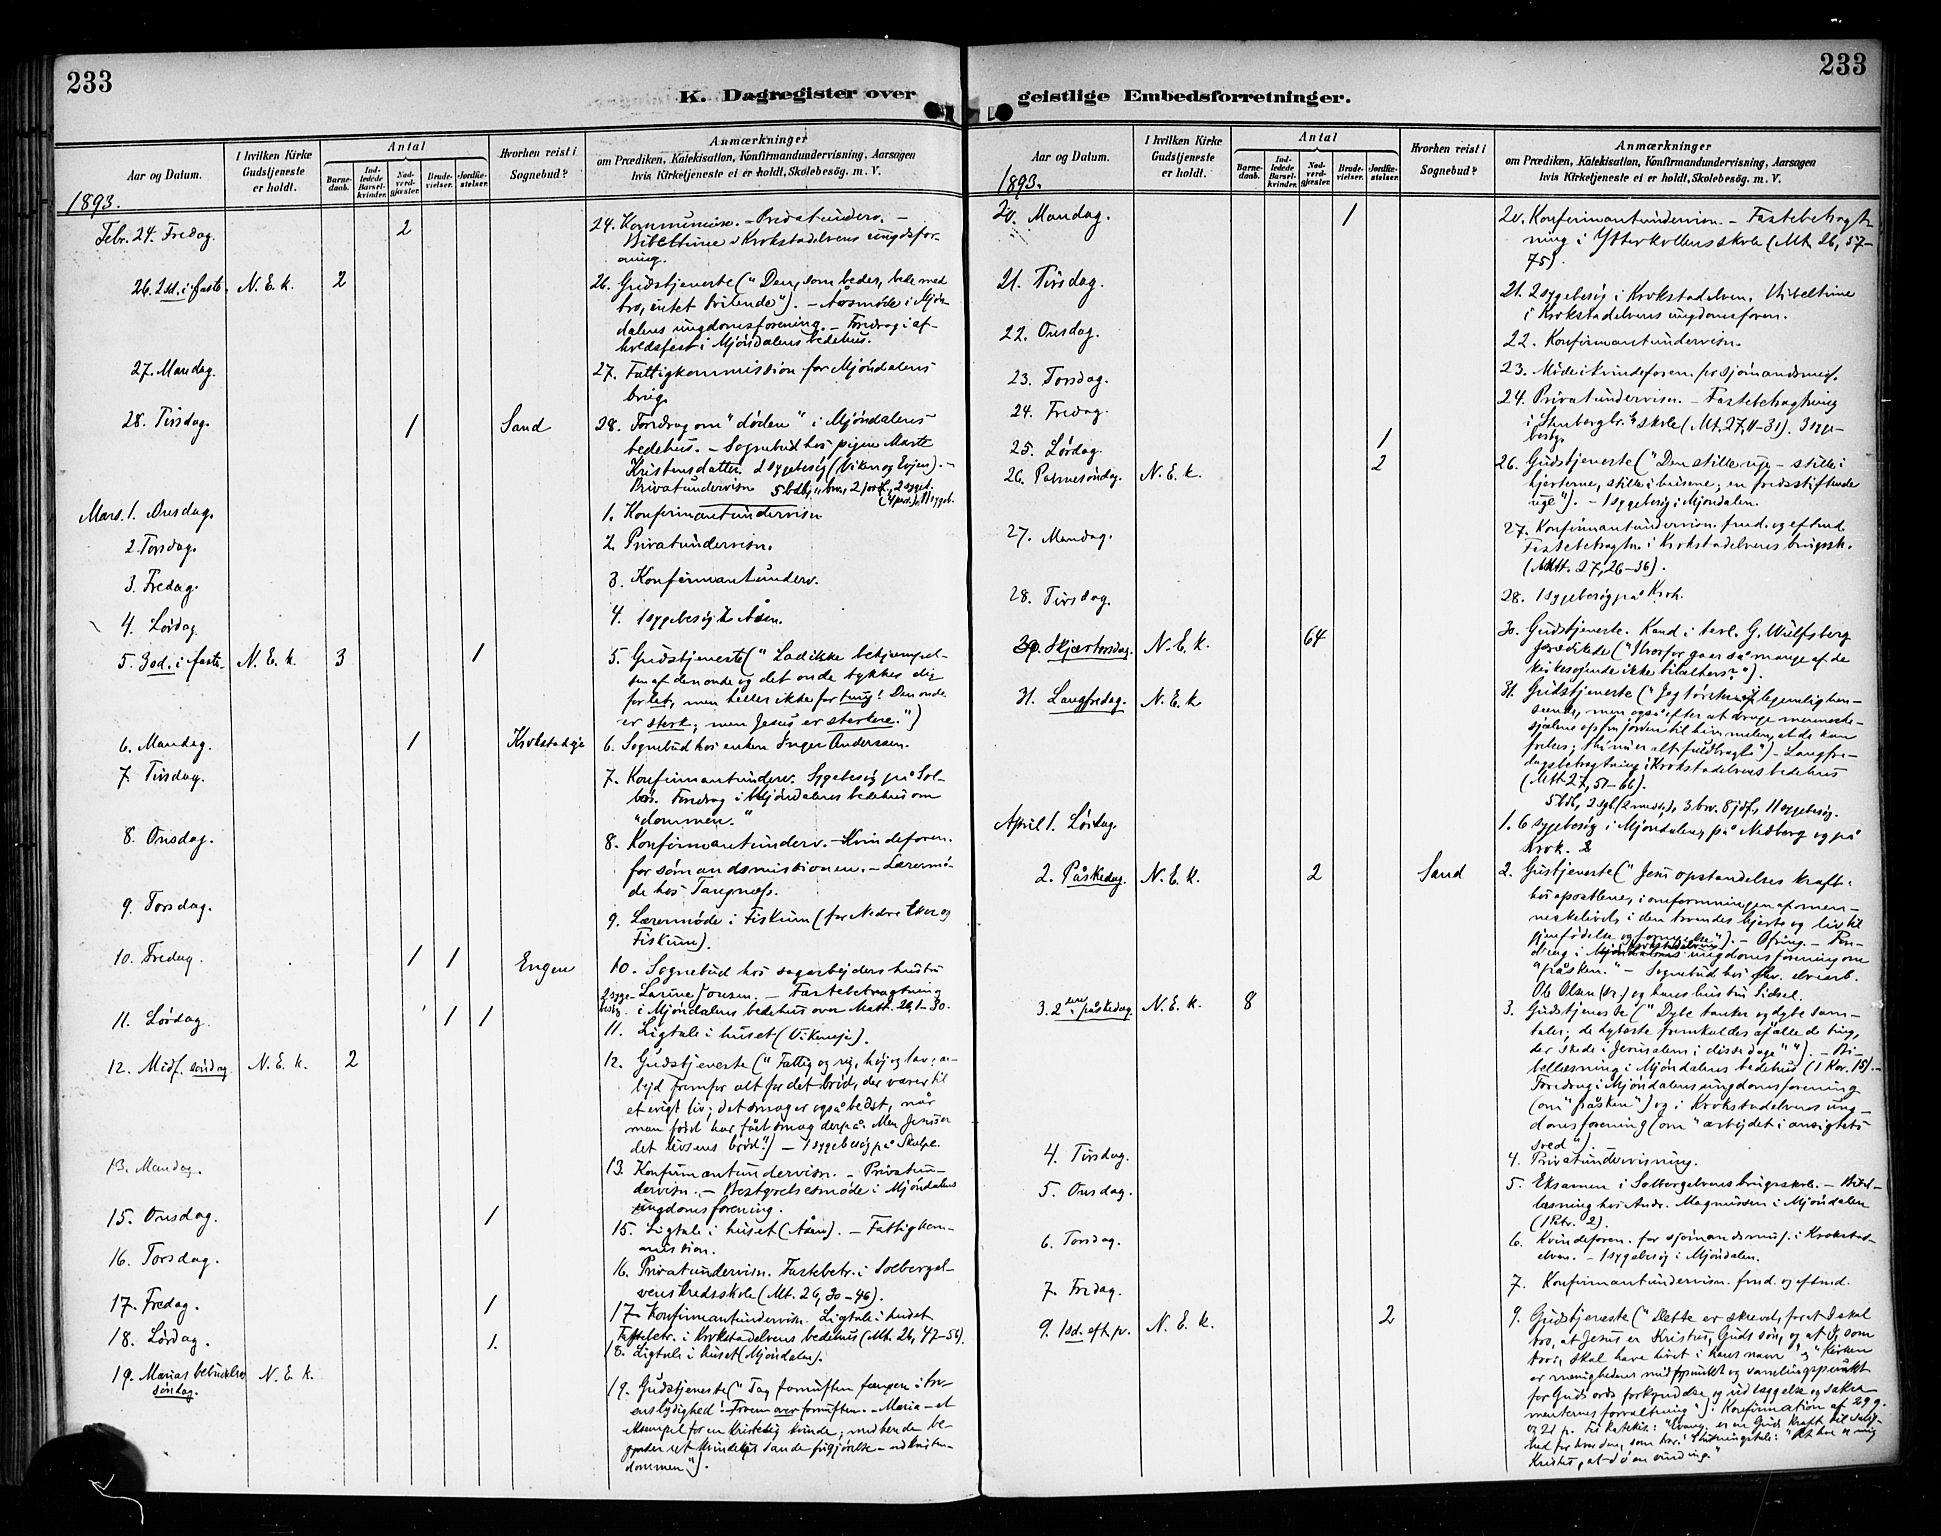 233
K. Dagregister over
Aar og Datum.
I hvilken Kirke
Gudstjeneste
er holdt.
Antal
Barne-
daab.
Ind-
ledede
Barsel-
kvinder.
Nad-
verd-
gjæster.
Brude-
vielser.
Jordfæ-
stelser.
Hvorhen reist i
Sognebud?
Anmærkninger
om Prædiken, Katekisation, Konfirmandundervisning, Aarsagen
hvis Kirketjeneste ei er holdt, Skolebesög. m. V.
1893.
Febr. 24. Fredag. 2 24. Kommunion. – Privatunderv. –
Bibeltime i Krokstadelvens ungdomsfor-
ening.
26. 2 sd. i faste. N. E. k. 2 26. Gudstjeneste ("Den, som beder, bede med
tro, intet tvilende"). – Årsmöde i Mjön-
dalens ungdomsforening. – Foredrag i af-
holdsfest i Mjöndalens bedehus.
27. Mandag. 27. Fattigkommission for Mjöndalens
brug.
28. Tirsdag. 1 Sand 28. Foredrag om "döden" i Mjöndalens
bedehus. – Sognebud hos pigen Marte
Kristensdatter. 2 sygebesög (Viken og Evjen). –
Privatundervisn
Mars. 1. Onsdag. 1. Konfirmantundervisn
2. Torsdag. 2. Privatundervisn.
3. Fredag. 3. Konfirmantunderv.
4. Lördag. 4. 1 sygebesög i Åsen.
5. 3 sd. i faste. N. E. k. 3 1 5. Gudstjeneste ("Lad ikke bekjæmpel-
sen af den onde og det onde tykkes dig
for let, men heller ikke for tung! Den onde
er sterk; men Jesus er sterkere.")
6. Mandag. 1 Krokstadeje 6. Sognebud hos enken Inger Anderssen.
7. Tirsdag. 7. Konfirmantunderv. Sygebesög på Sol-
Foredrag i Mjöndalens bedehus om
"dommen."
8. Onsdag. 8. Konfirmantunderv. – Kvindeforen.
for sömandsmissionen. – Lærermö-
de hos Tangnæs.
9. Torsdag. 9. Lærermöde i Fiskum (for Nedre Eker og
Fiskum).
10. Fredag. 1 1 Engen 10. Sognebud hos sagarbejders hustru
Larine Jonsen. – Fastebetragtning
i Mjöndalens bedehus over Matt. 26, 1–30.
11. Lördag. 1 1 11. Ligtale i huset (Vikeneje).
12. Midf. söndag N. E. k. 2 12. Gudstjeneste ("Fattig og rig, höj og lav: ar-
bejd fremfor alt for det bröd, der varer til
et evigt liv; det smager også bedst, når
man först har fået smag derpå. Men Jesus er
det livsens bröd".) – 1 sygebesög på Stelpe.
13. Mandag. 13. Konfirmantundervisn. – Privatun-
dervisn. – Bestyrelsesmöde i Mjöndalens
ungdomsforening.
15. Onsdag. 1 15. Ligtale i huset (Åsen). – Fattigkom-
mission.
16. Torsdag. 16. Privatundervisn. Fastebetr. i Solbergel-
vens kredsskole (Mt. 26, 30–46).
17. Fredag. 1 17. Konfirmantundervisn. Ligtale i huset
Fastebetr. i Krokstadelvens bedehus (Mt. 26, 47–56).
18. Lördag. 1. 18. Ligtale i huset (Mjöndalen).
19. Marias bebudelses
söndag. N. E. k. 19. Gudstjeneste ("Tag fornuften fangen i tro-
ens lydighed! Troen over fornuften. – Maria – et
eksempel for en kristelig kvinde; med hende be-
gynder ret kvindens sande frigjörelse – ved kristen-
dommen").
233
geistlige Embedsforretninger.
Aar og Datum.
I hvilken Kirke
Gudstjeneste
er holdt.
Antal
Barne-
daab.
Ind-
ledede
Barsel-
kvinder.
Nad-
verd-
gjæster.
Brude-
vielser.
Jordfæ-
stelser.
Hvorhen reist i
Sognebud?
Anmærkninger
om Prædiken, Katekisation, Konfirmandundervisning, Aarsagen
hvis Kirketjeneste ei er holdt, Skolebesög. m. V.
1893.
20. Mandag. 1 20. Konfirmantundervisn. – Fastebetragt-
ning i Ytterkollens skole (Mt. 26, 57–
75).
21. Tirsdag. 21. 2 sygebesög i Krokstadelven. Bibeltime
i Krokstadelvens ungdomsforen.
22. Onsdag. 22. Konfirmantundervisn.
23. Torsdag. 23. Möde i kvindeforen. for sjömandsmis.
24. Fredag. 24. Privatundervisn. – Fastebetragtning
i Stenbergbr.s skole (Mt. 27, 11–31). 3 syge-
besög.
25. Lördag. 1
26. Palmesöndag. N. E. k. 2 26. Gudstjeneste ("Den stille uge – stille i
hjerterne, stille i husene; en fredsstiftende
uge"). – 1 sygebesög i Mjöndalen.
27. Mandag. 27. Konfirmantundervisn. fmd. og eftmd.
Fastebetragtn. i Krokstadelvens brugssk.
(Matt. 27, 26–36).
28. Tirsdag. 28. 1 sygebesög på Krok.
30. Skjærtorsdag. N. E. k. 64 30. Gudstjeneste. Kand. i teol. G. Wulfsberg
prædikede ("Hvorfor gaar så mange af de
kirkesögende ikke til alters?").
31. Langfredag. N. E. k 31. Gudstjeneste ("Jeg törster" – legemlig hen-
seende, men også efter at drage menneske-
sjælene op fra jorden til himmelen, at de kan
frelses; thi nu er alt fuldbragt") – Langfre-
dagsbetragtning i Krokstadelvens bedehus
(Mt. 27, 51–66).
April 1. Lördag. 1. 6 sygebesög i Mjöndalen, på Nedberg og på
Krok. 2
2. Påskedag. N. E. k. 2 Sand 2. Gustjeneste ("Jesu opstandelses kraft:
hos apostlene, i omformningen af men-
neskelivet, i den troendes hjerte og liv til
gjenfödelse og fornyelse"). – Ofring. – Fore-
drag i Krokstadelvens ungdomsforening om
"påsken." – Sognebud hos elvearb.
Ole Olsen (sr.) og hans hustru Sidsel.
3. 2den påskedag N. E. k. 8 3. Gudstjeneste ("Dybe tanker og dybe sam-
taler; de dybeste fremkaldes af alle de ting,
der skede i Jerusalem i disse dage"). – Bi-
bellæsning i Mjöndalens bedehus (1 Kor. 15). –
Foredrag i Mjöndalens ungdomsforening
(om "påsken") og i Krokstadelvens ung-
domsforening (om "arbejdet i ansigtets
sved").
4. Tirsdag. 4. Privatundervisning.
5. Onsdag. 5. Eksamen i Solbergelvens brugsskole. – Bibel-
læsning hos Andr. Magnussen i Mjöndalen
(1 Petr. 2).
6. Torsdag. 6. Kvindeforen. for sjömandsmis. i Krokstad-
elven. – 1 sygebesög i Mjöndalen.
7. Fredag. 7. Konfirmantundervisn. fmd. og eftmd.
9. 1 sd. eft. p. N. E. k. 2 9. Gudstjeneste ("Dette er skrevet, for at I skal
tro, at Jesus er Kristus, Guds sön, og at I, som
tror, skal have livet i hans navn" og "Kirken
er menighedens midtpunkt og samlingspunkt
for Guds ords forkyndelse og udlæggelse og sakra-
menternes forvaltning"). Konfirmation af 29 g.
og 21 p.